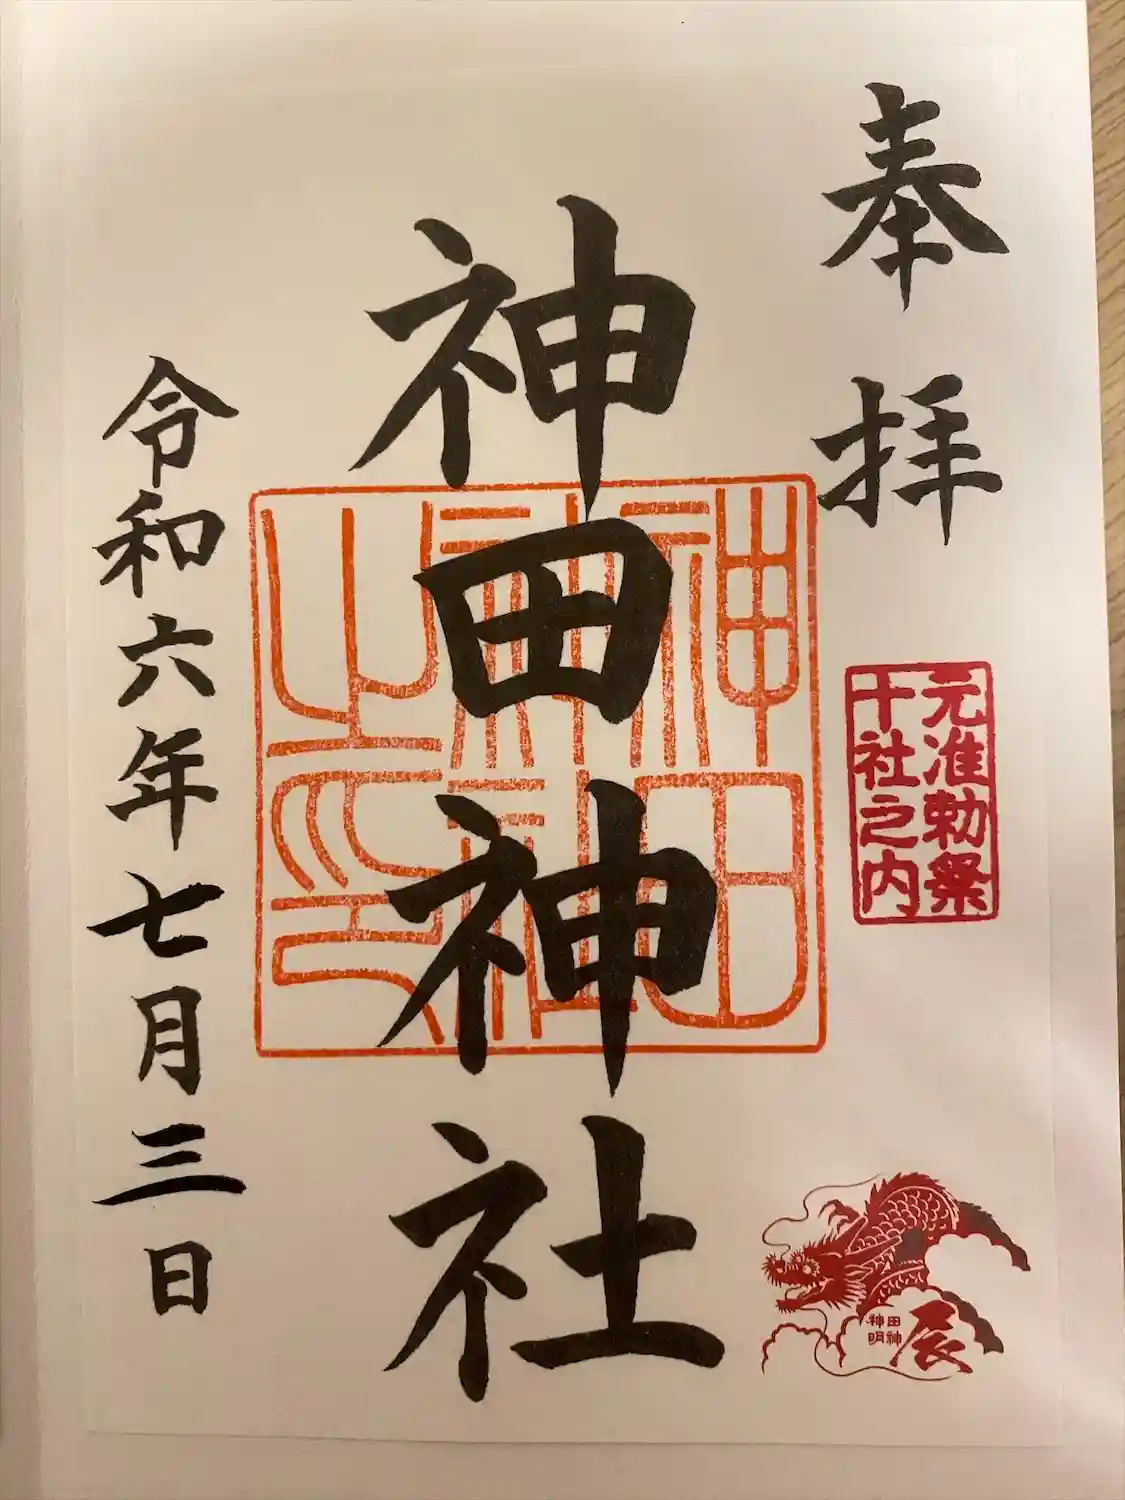 奉拝
元准勅祭
十社之内
神田神社
神田
神社
之印
令和六年七月三日
神田
明神
辰